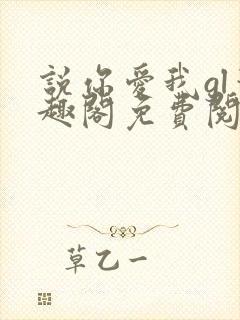 說你愛我gl
趣閣免費閱
草乙一